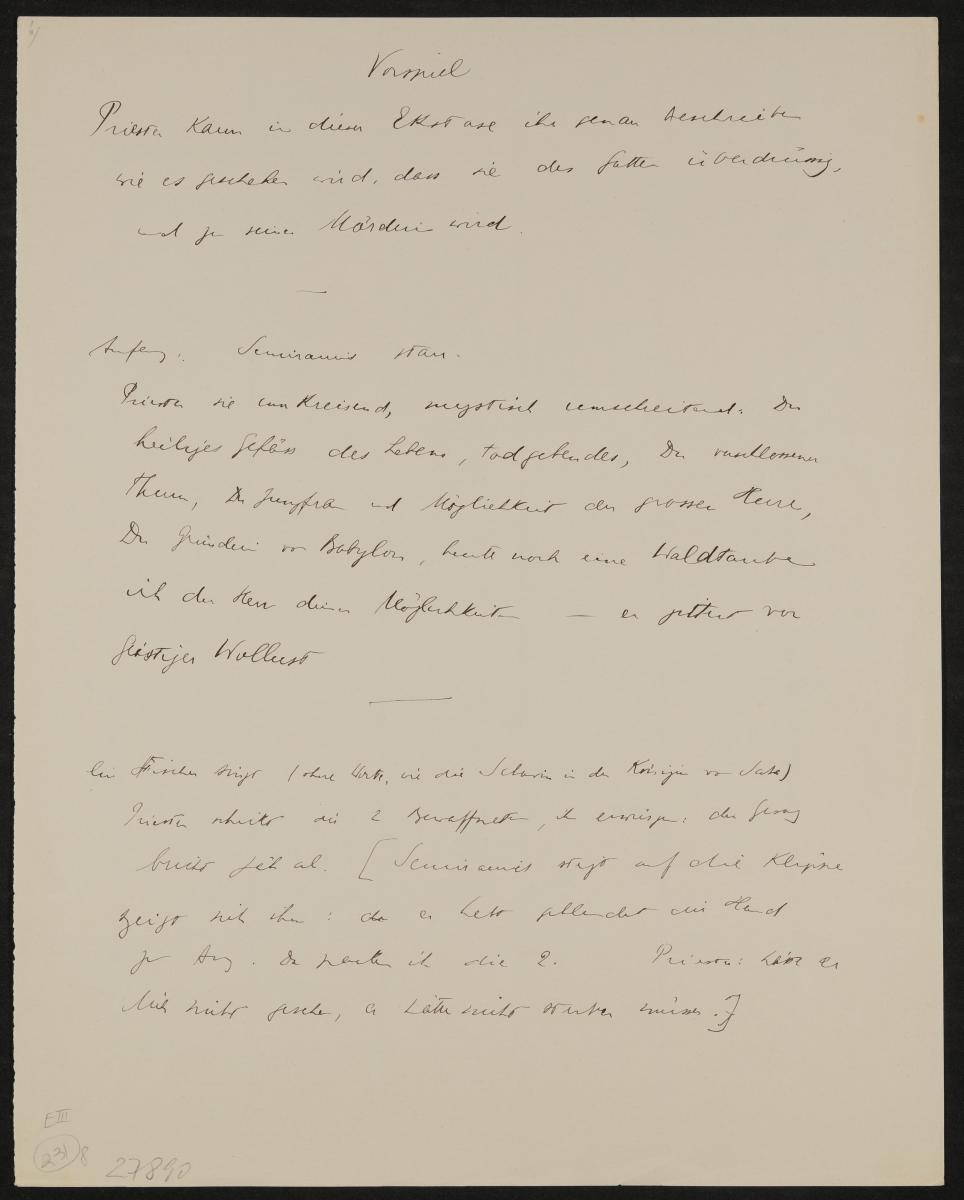 Vorspiel
Priester kann in dieser Ekstase ihr genau beschreiben
wie es geschehen wird, dass sie des Gatten überdrüssig,
und zu seiner Mörderin wird.
—
Anfang: Semiramis starr.
Priester sie umkreisend, mystisch umschreitend: Du
heiliges Gefäss des Lebens, todgebendes, Du verschlossener
Thurm, Du Jungfrau und Möglichkeit der grossen Heere,
Du Gründerin von Babylon, heute noch eine Waldtaube
ich der Herr deiner Möglichkeiten — er zittert vor
geistiger Wollust
—
Ein Fischer singt (ohne Worte, wie die in der von )
Priester schickt die 2 Bewaffneten, ihn erwürgen: der Gesang
bricht jäh ab. [Semiramis steigt auf die Klippe
zeigt sich ihm: da er hebt geblendet die Hand
zum Aug. Da packen ihn die 2. Priester: hätte er
Dich nicht gesehen, er hätte nicht sterben müssen.]
E III
231 8
27890